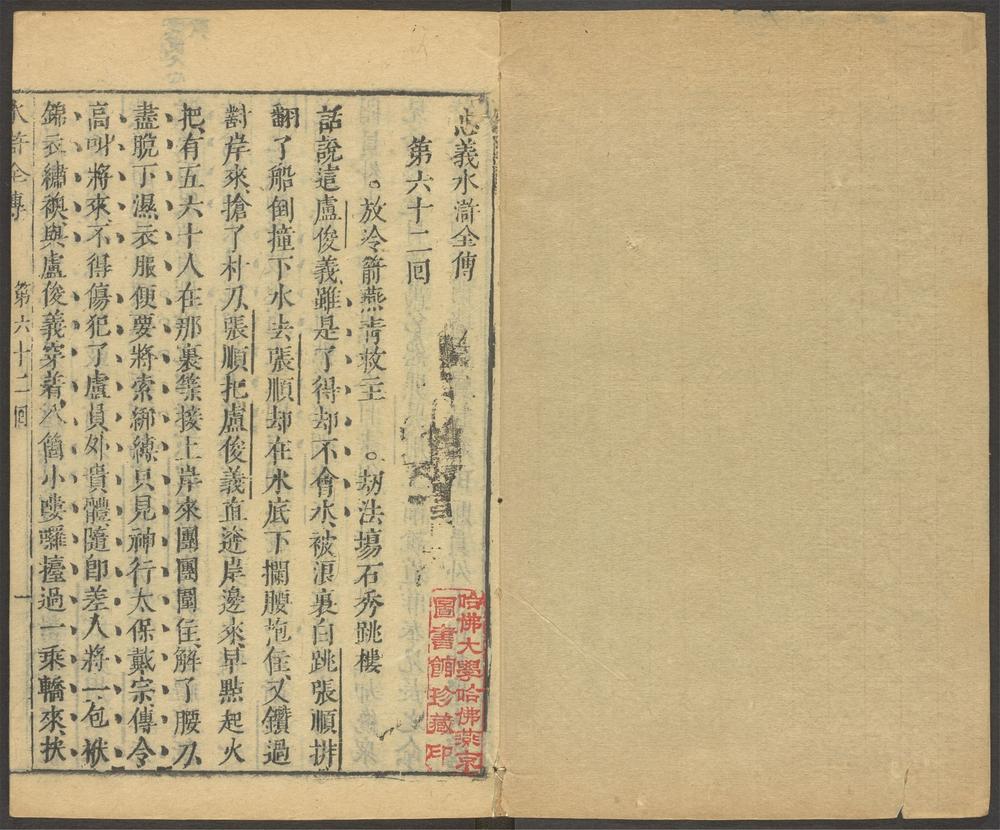 忠義水滸全傳
第六十二回
放冷箭燕青救主
劫法場石秀跳樓
話說這盧俊義雖是了得却不會水被浪裏白跳張順排
翻了船倒撞下水去張順却在水底下攔腰抱住又鑽過
對岸來搶了朴刀張順把盧俊義直逩岸邊來早點起火
把有五六十人在那裏等接上岸來團團圍住解了腰刀
盡脫下濕衣服便要將索綁縛只見神行太保戴宗傳令
高叫將來不得傷犯了盧員外貴體隨卽差人將一包袱
錦衣繡襖與盧俊義穿着八箇小嘍囉擡過一乘轎來扶
水滸全傳
第六十二回
一
哈佛大學哈佛燕京
圖書館珍藏印